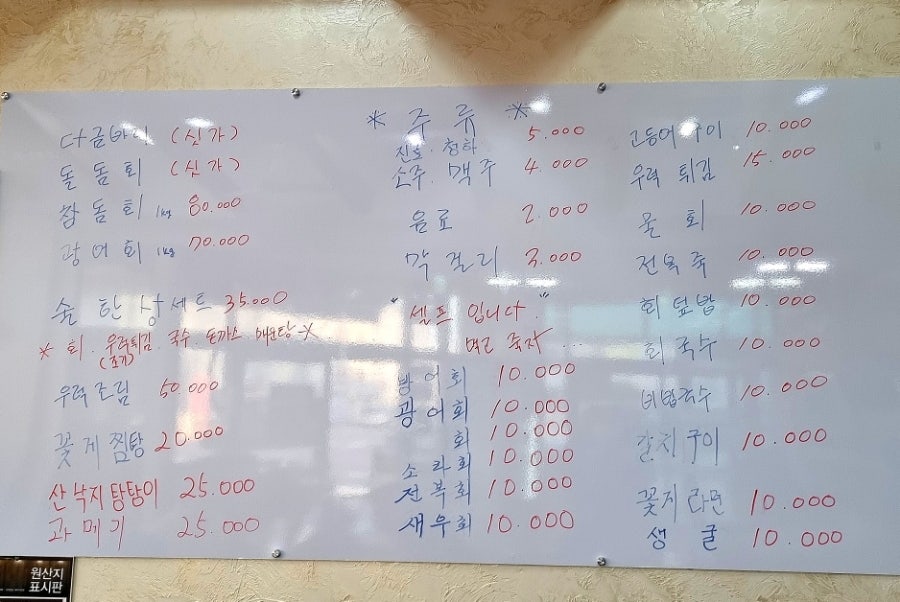 다금바리 (싯가)
돌돔회 (싯가)
참돔회 1kg 80.000
광어회 1kg 70.000
술 한상세트 35.000
* 회. 우럭튀김. 국수. 돈까스. 매운탕 *
우럭조림 50.000
꽃게찜탕 20.000
산낙지탕탕이 25.000
과메기 25.000
* 주류 *
진로. 청하 5.000
소주. 맥주 4.000
음료 2.000
막걸리 3.000
"셀프 입니다"
방어회 10.000
광어회 10.000
회 10.000
소라회 10.000
전복회 10.000
새우회 10.000
고등어구이 10.000
우럭튀김 15.000
물회 10.000
전복죽 10.000
회덮밥 10.000
회국수 10.000
비빔국수 10.000
갈치구이 10.000
꽃게라면 10.000
생굴 10.000
원산지
표시판